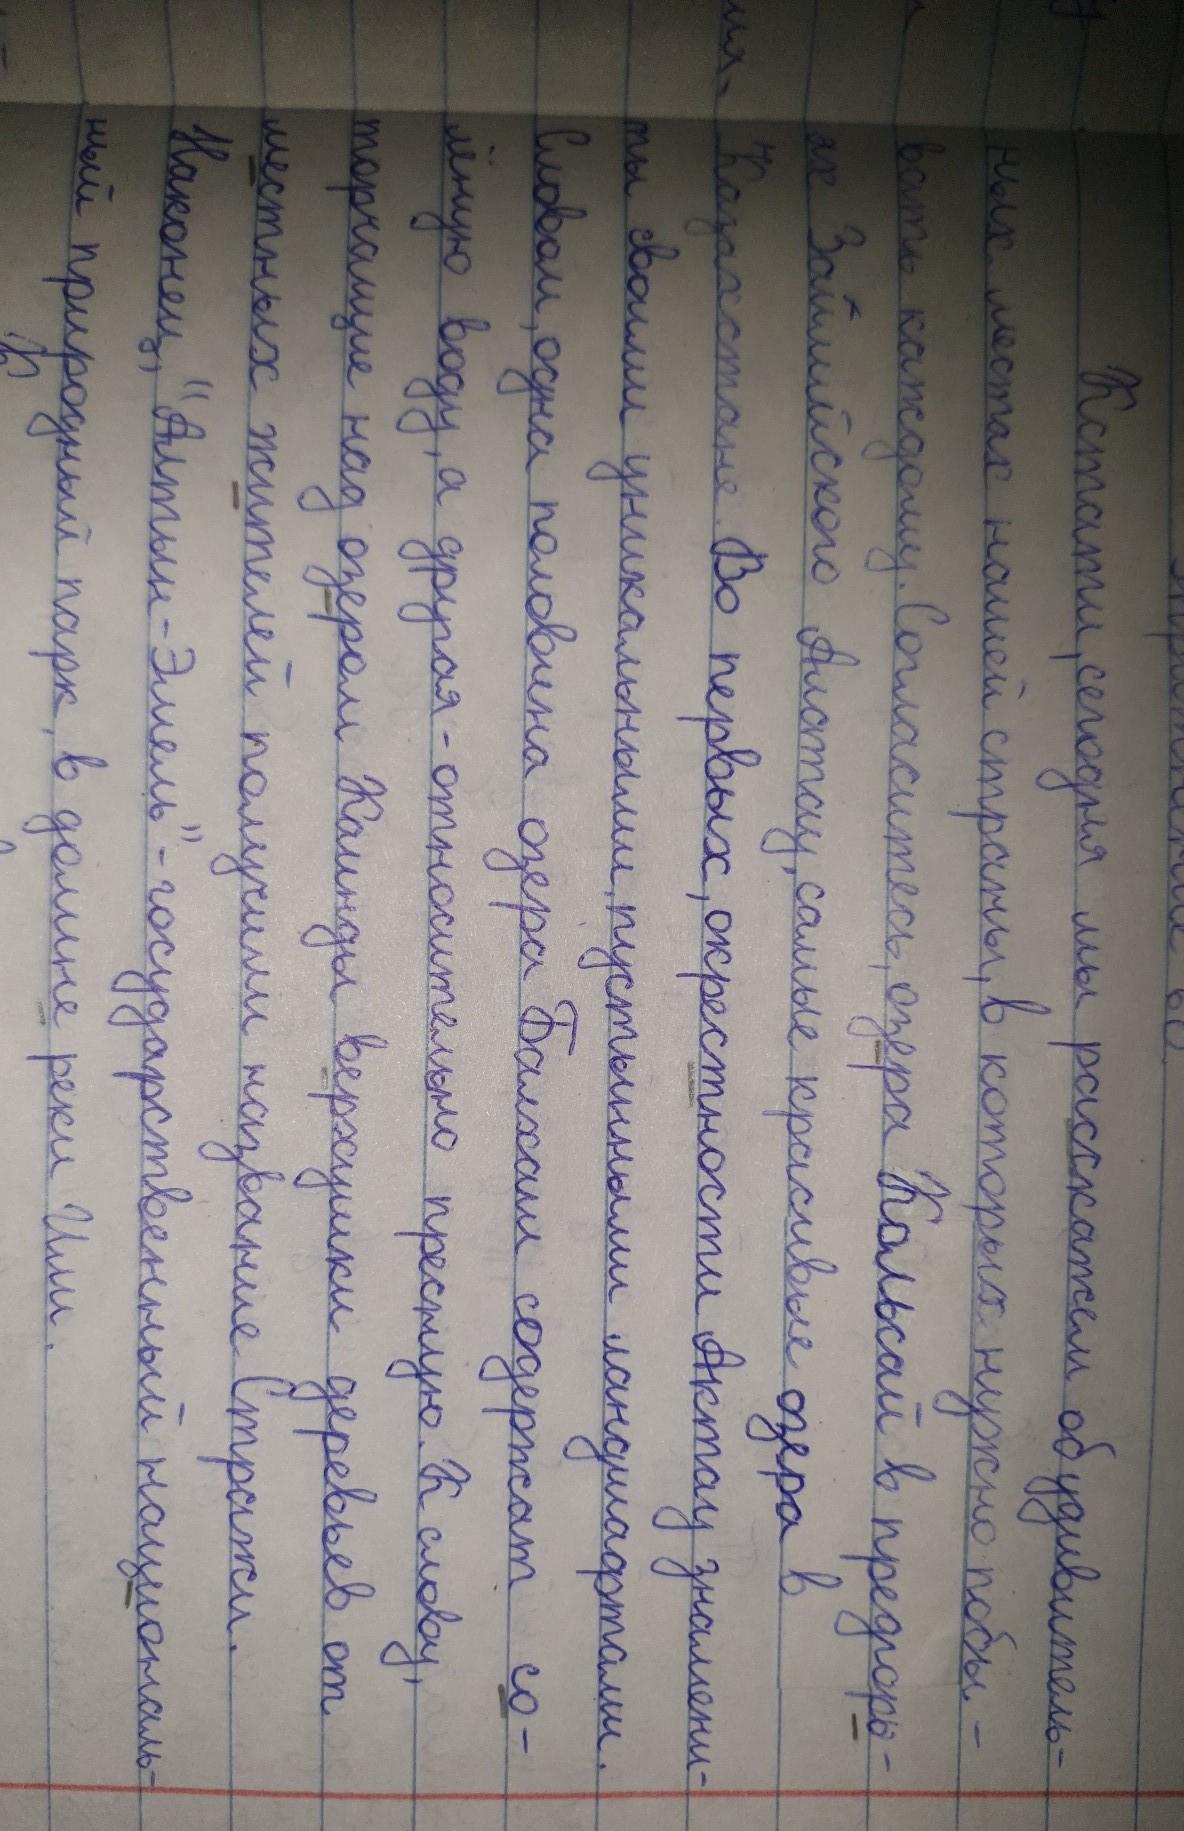 Кстати, сегодня мы расскажем об удивитель-
ных местах нашей страны, в которых нужно побы-
вать каждому. Согласитесь, озера Кольсай в предгорь-
ях Заилийского Алатау, самые красивые озера в
Казахстане. Во первых, окрестности Актау знамени-
ты своими уникальными, пустынными ландшафтами.
Словом, одна половина озера Балхаш содержат со-
лёную воду, а другая - относительно пресную. К слову,
торчащие над озером Каинды верхушки деревьев от
местных жителей получили название Стражи.
Наконец, "Алтын-Эмель" - государственный националь-
ный природный парк, в долине реки Или.